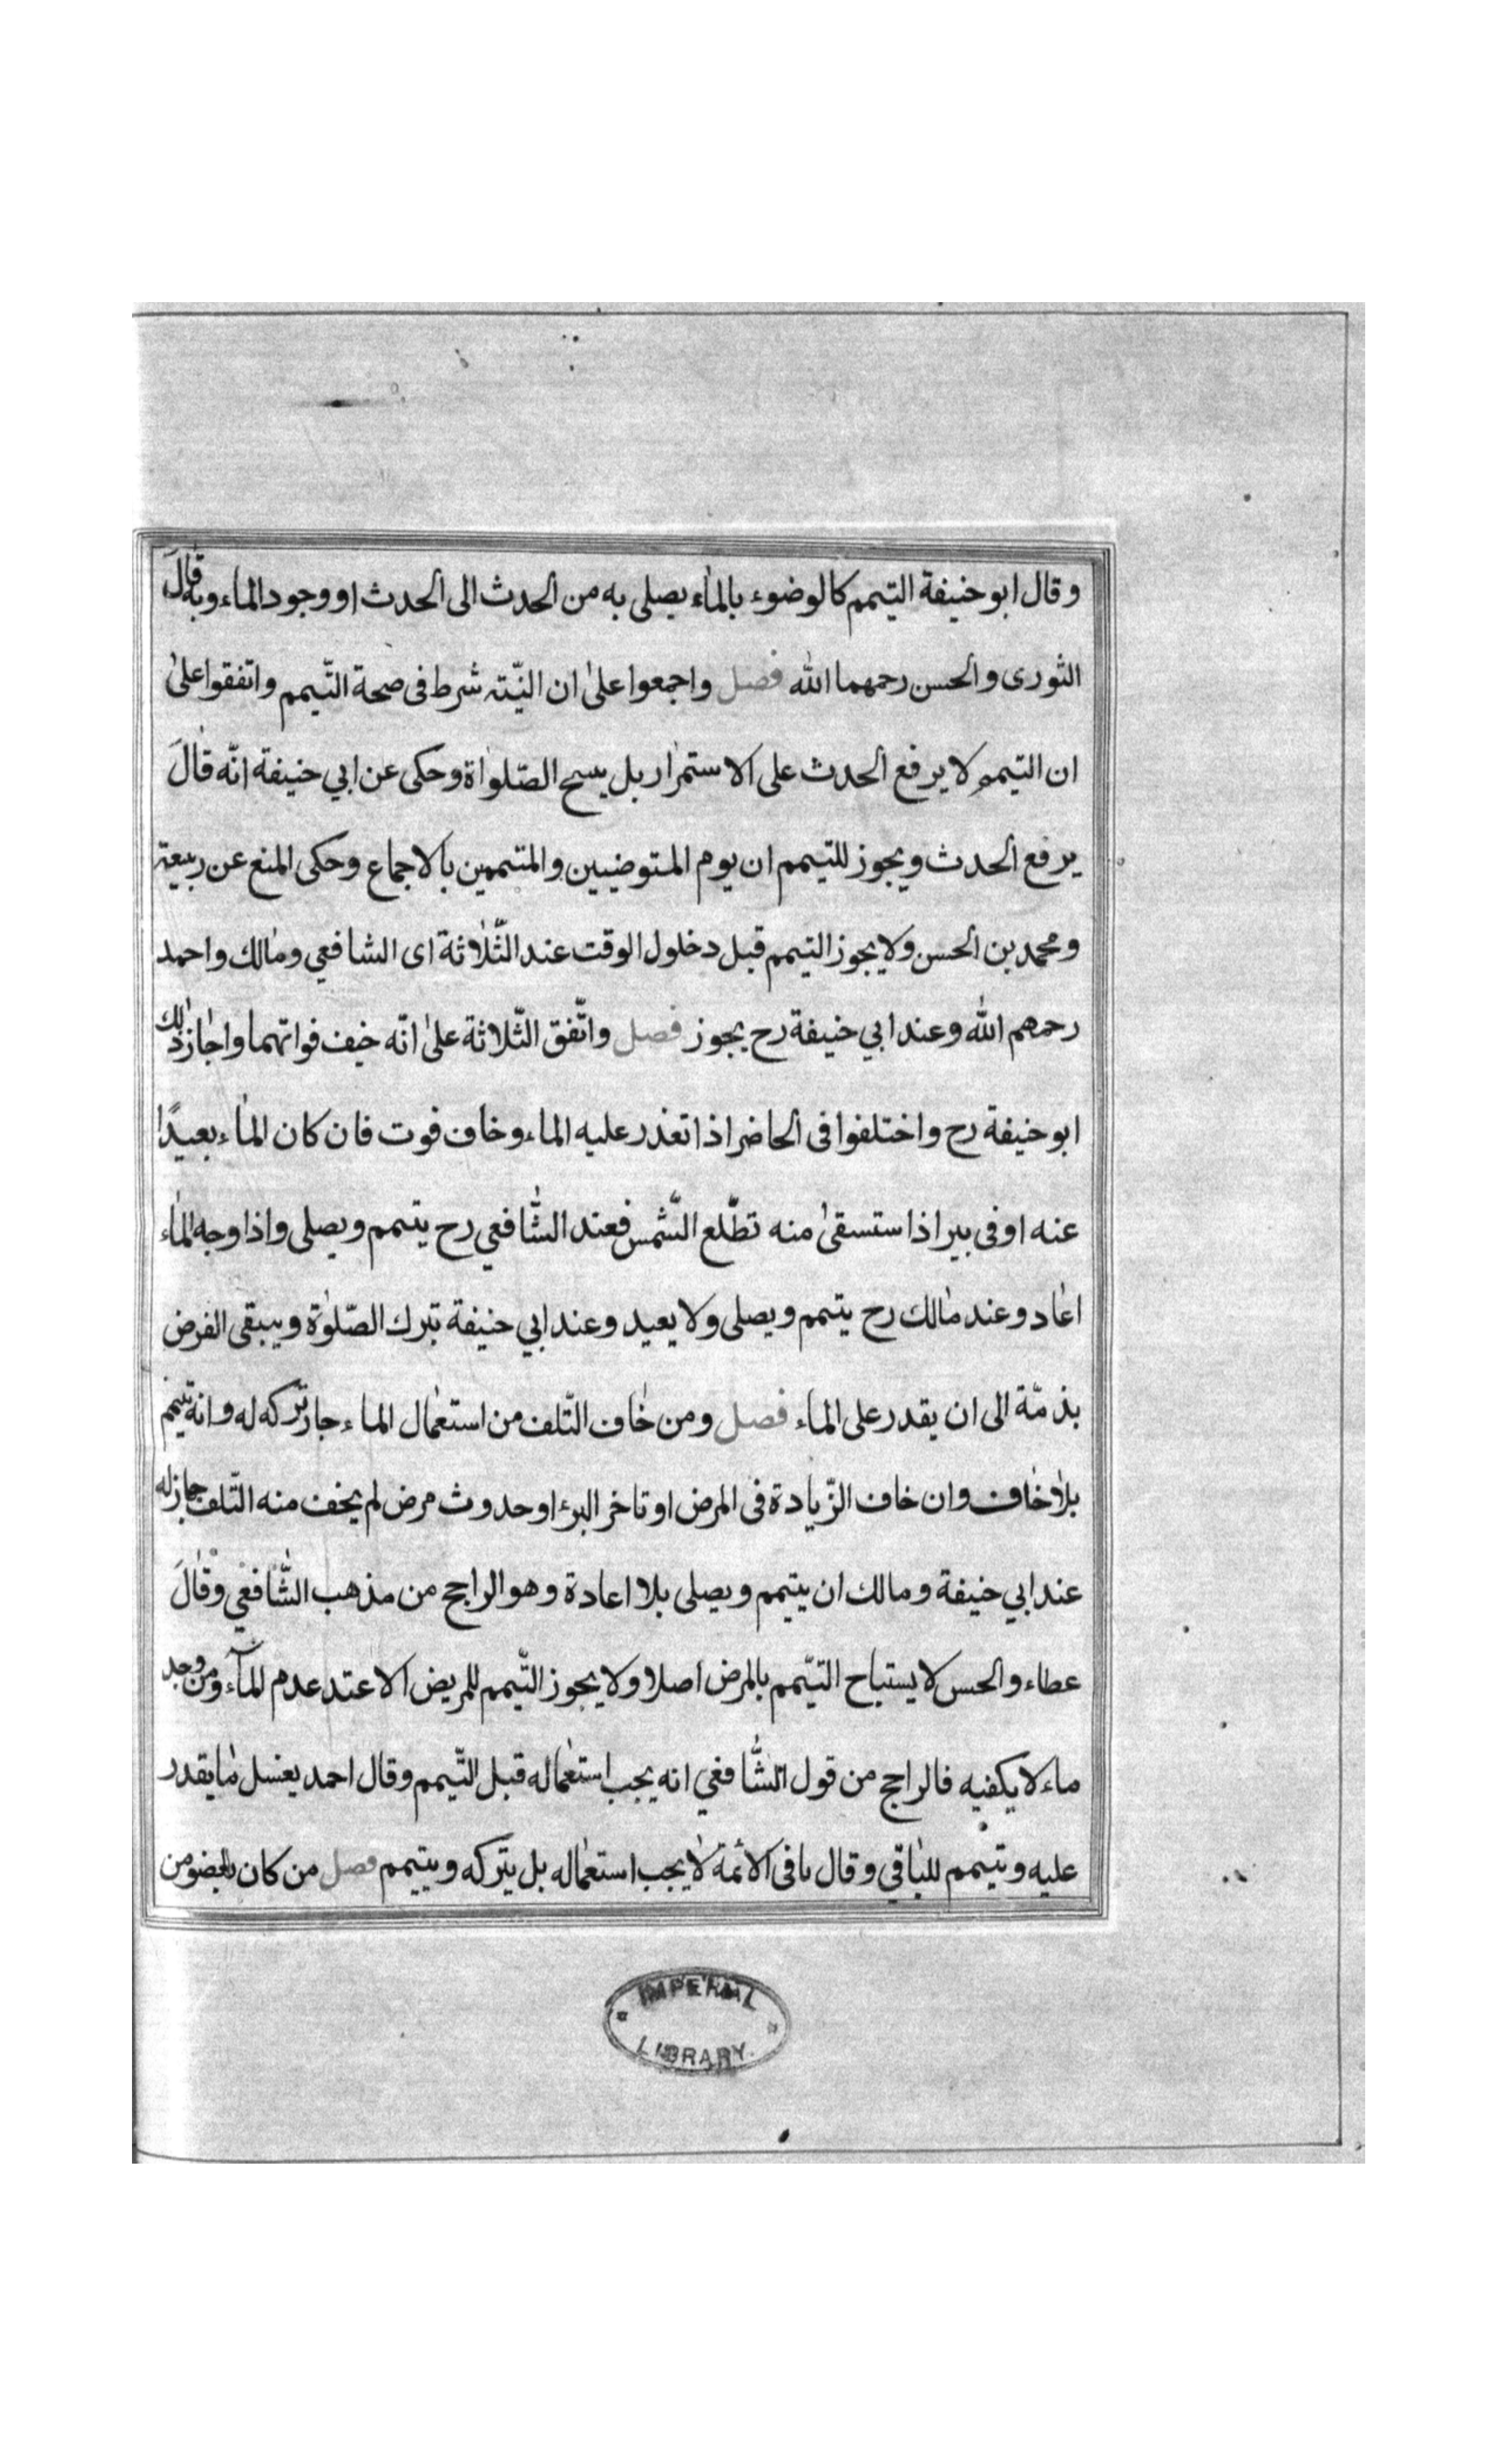 وقال ابو حنيفة التيمم كالوضوء بالماء يصلى به من الحدث الى الحدث او وجود الماء وبه قالَ
الثورى والحسن رحمهما الله فصل واجمعوا علىٰ ان النيّة شرط فى صحة التّيمم واتفقوا علىٰ
ان التيمم لا يرفع الحدث على الاستمرار بل يسح الصّلواة وحكى عن ابي حنيفة انّه قالَ
يرفع الحدث ويجوز للتيمم ان يوم المتوضيين والمتيممين بالاجماع وحكى المنع عن ربيعة
ومحمد بن الحسن ولا يجوز التيمم قبل دخلول الوقت عند الثّلاثة اى الشافعي ومالك واحمد
رحمهم الله وعند ابي حنيفة رح يجوز فصل واتّفق الثّلاثة علىٰ انّه خيف فواتهما واجاز ذلك
ابو حنيفة رح واختلفوا فى الحاضر اذا تغذر عليه الماء وخاف فوت فان كان الماء بعيدًا
عنه او فى بير اذا ستسقىٰ منه تطّلع الشّمس فعند الشّافعي رح يتيمم ويصلى واذا وجه الماء
اعاد وعند مالك رح يتيمم ويصلى ولا يعيد وعند ابي حنيفة تبرك الصّلوٰة ويبقى الفرض
بذمّة الى ان يقدر على الماء فصل ومن خاف التّلف من استعمال الماء جاز تركه له وانه تيمم
بلا خاف وان خاف الزّيادة فى المرض او تاخر البرء او حدوث مرض لم يخف منه التّلف جاز له
عند ابي حنيفة ومالك ان يتيمم ويصلى بلا اعادة وهو الراجح من مذهب الشّافعي وقالَ
عطاء والحسن لا يستباح التيّمم بالمرض اصلا ولا يجوز التّيمم للمريض الا عتد عدم المآء ومن وجد
ماء لا يكفيه فالراجح من قول الشّافعي انه يجب استعماله قبل التّيمم وقال احمد يغسل ما يقدر
عليه وتيمم للباقي وقال باقى الائمة لا يجب استعماله بل يتركه ويتيمم فصل من كان بعضو من
IMPERIAL
LIBRARY.